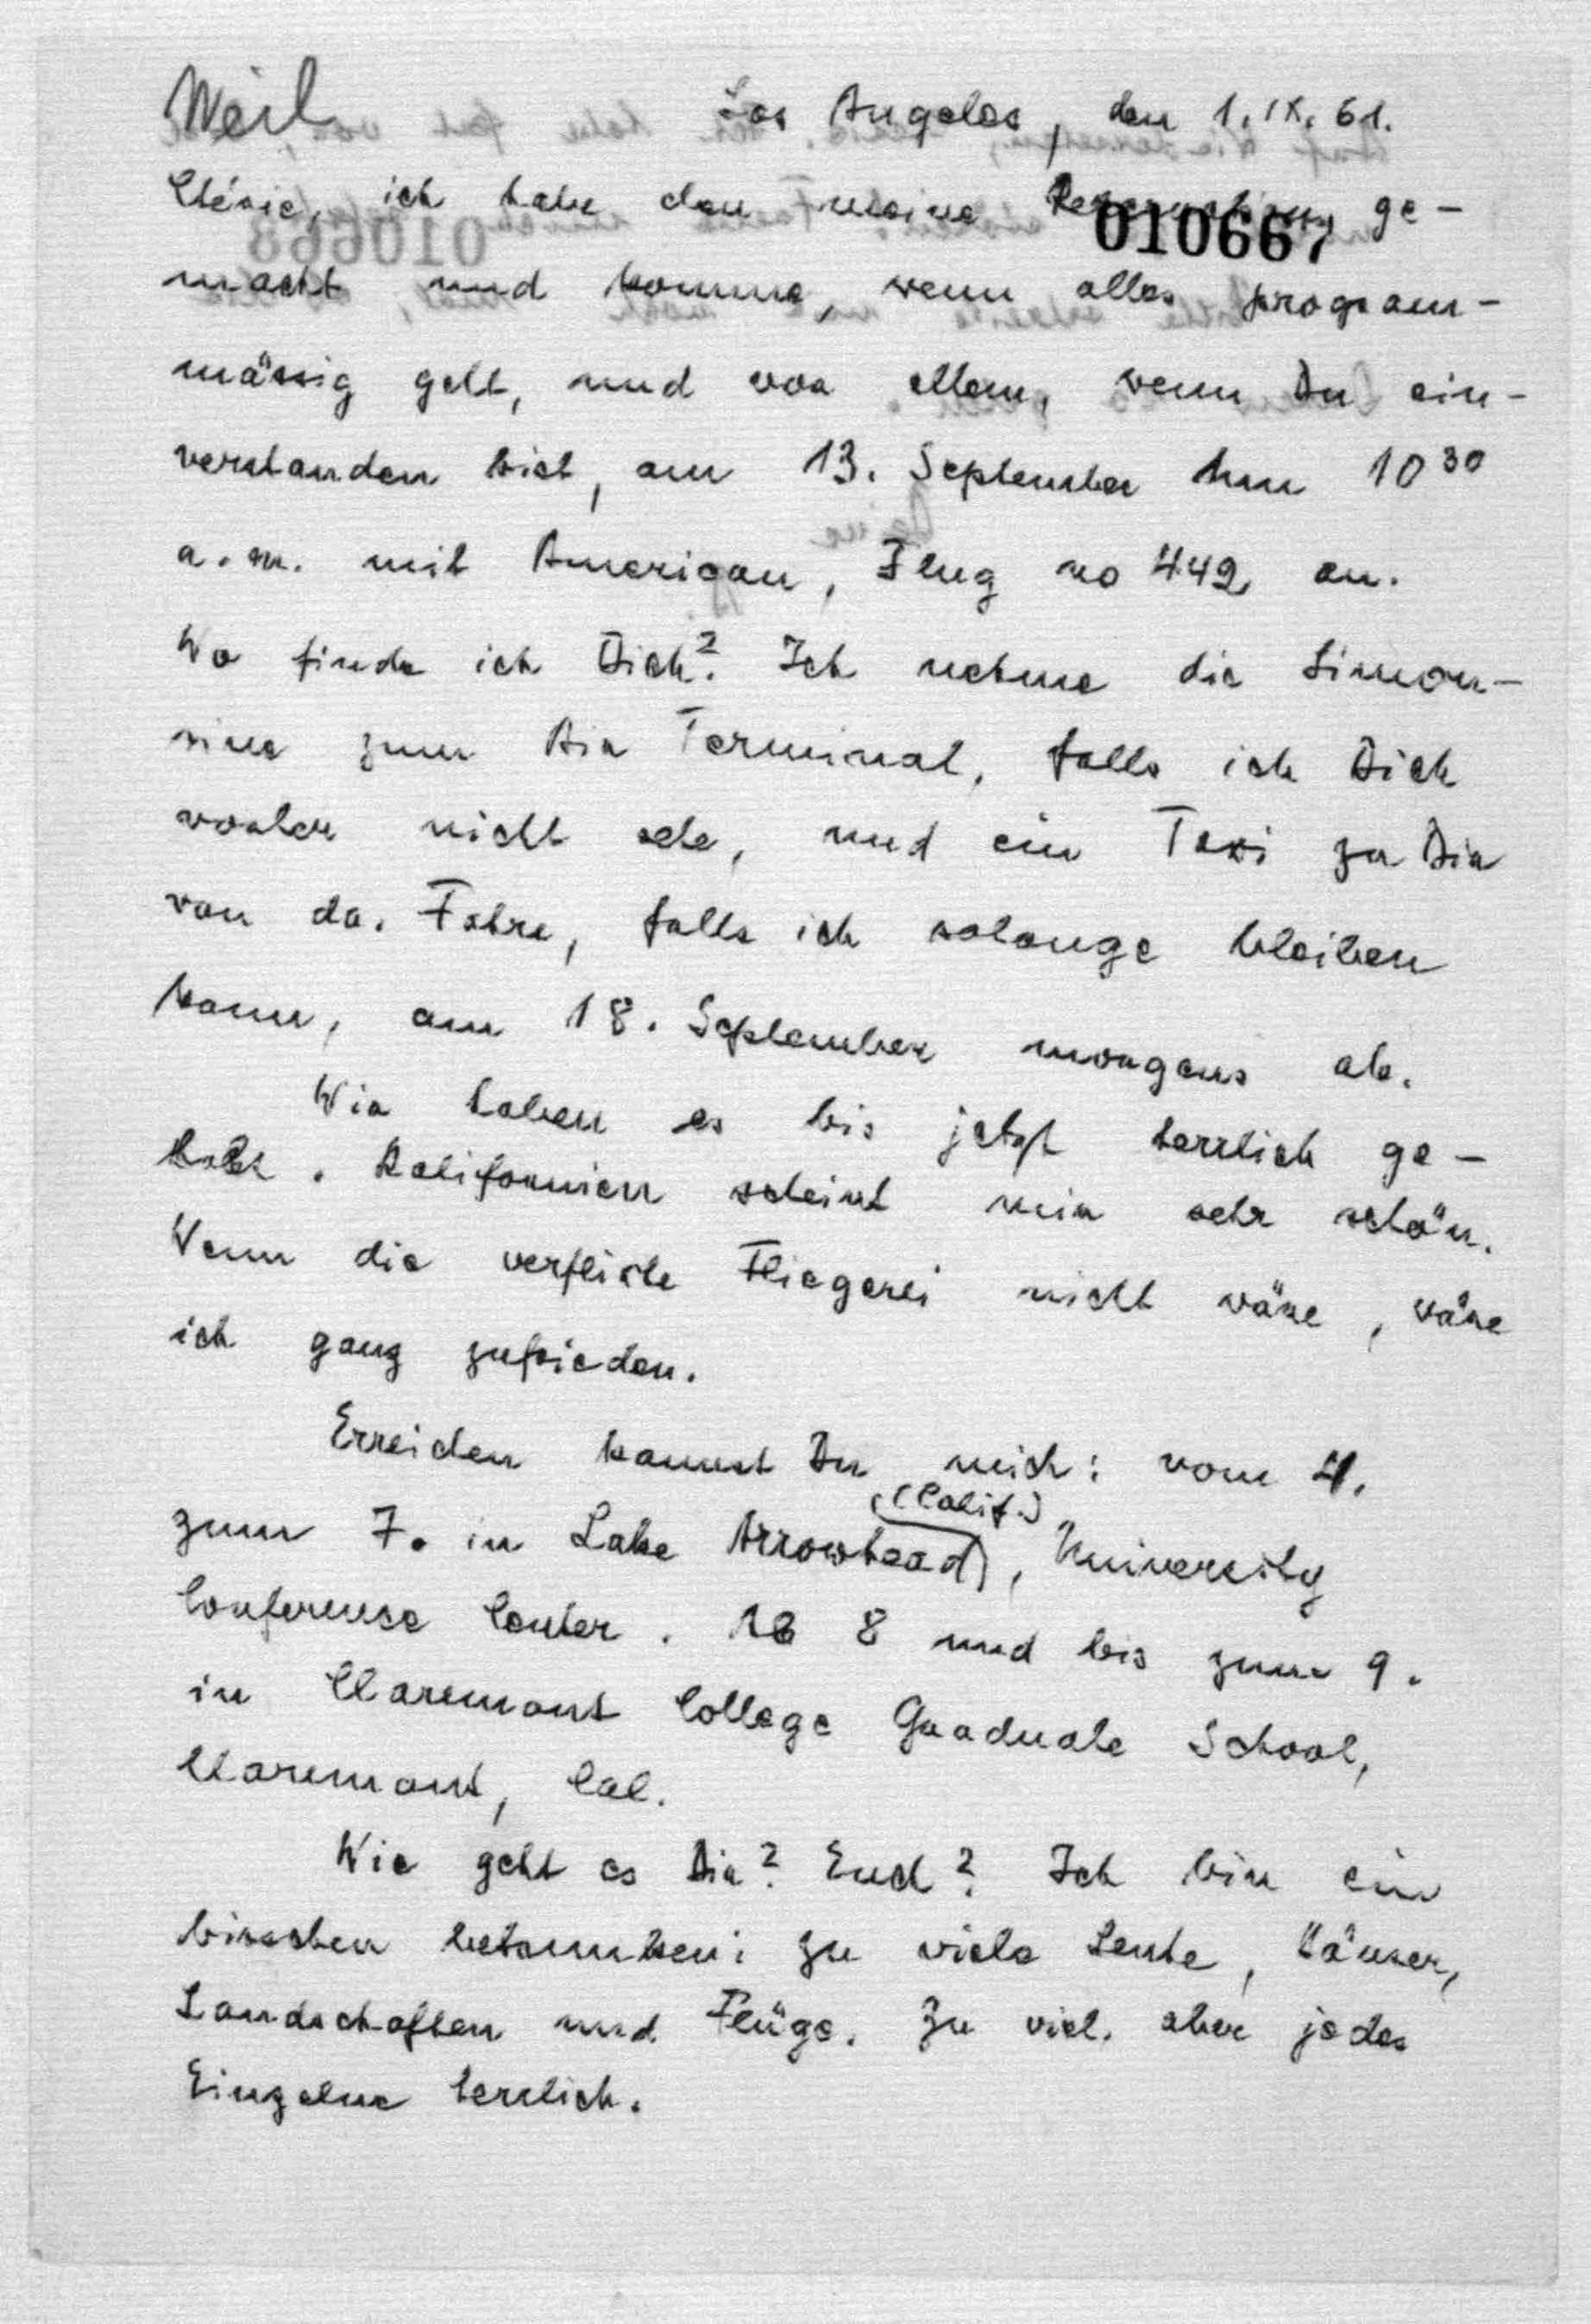 Weil
Los Angeles, den 1. IX. 61.
Chérie, ich habe den meine Reservation ge-
010667
macht und komme, wenn alles program-
mässig geht, und vor allem, wenn Du ein-
verstanden bist, am 13. September um 10 30
a.m. mit American, Flug no 442 an.
Wo finde ich Dich? Ich nehme die Limou-
sine zum Air Terminal, falls ich Dich
vorher nicht sehe, und ein Taxi zu Dir
von da. Fahre, falls ich solange bleiben
kann, am 18. September morgens ab.
Wir haben es bis jetzt herrlich ge-
habt. Kalifornien scheint mir sehr schön.
Wenn die verflixte Fliegerei nicht wäre, wäre
ich ganz zufrieden.
Erreichen kannst Du mich: vom 4.
(Calif.)
zum 7. in Lake Arrowhead, University
Conference Center. 8 und bis zum 9.
in Claremont College Graduate School,
Claremont, Cal.
Wie geht es Dir? Euch? Ich bin ein
bisschen betrunken: zu viele Leute, Häuser,
Landschaften und Flüge. Zu viel, aber jedes
Einzelne herrlich.